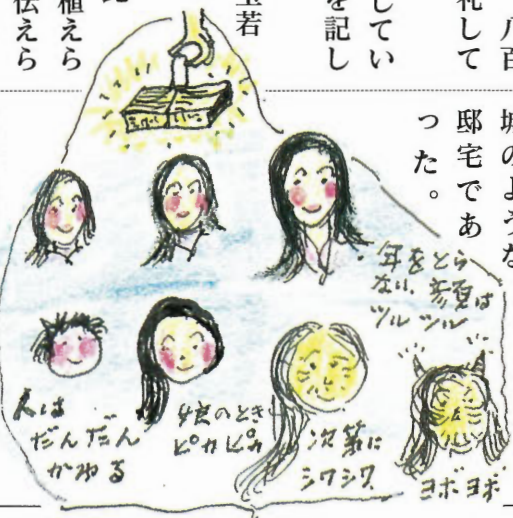 八百
礼して
してい
を記し
植えら
伝えら
城のような
邸宅であ
った。
年をとら
ない、顔は
ツルツル
人は
だんだん
かわる
娘のとき
ピカピカ
次第に
シワシワ
ヨボヨボ